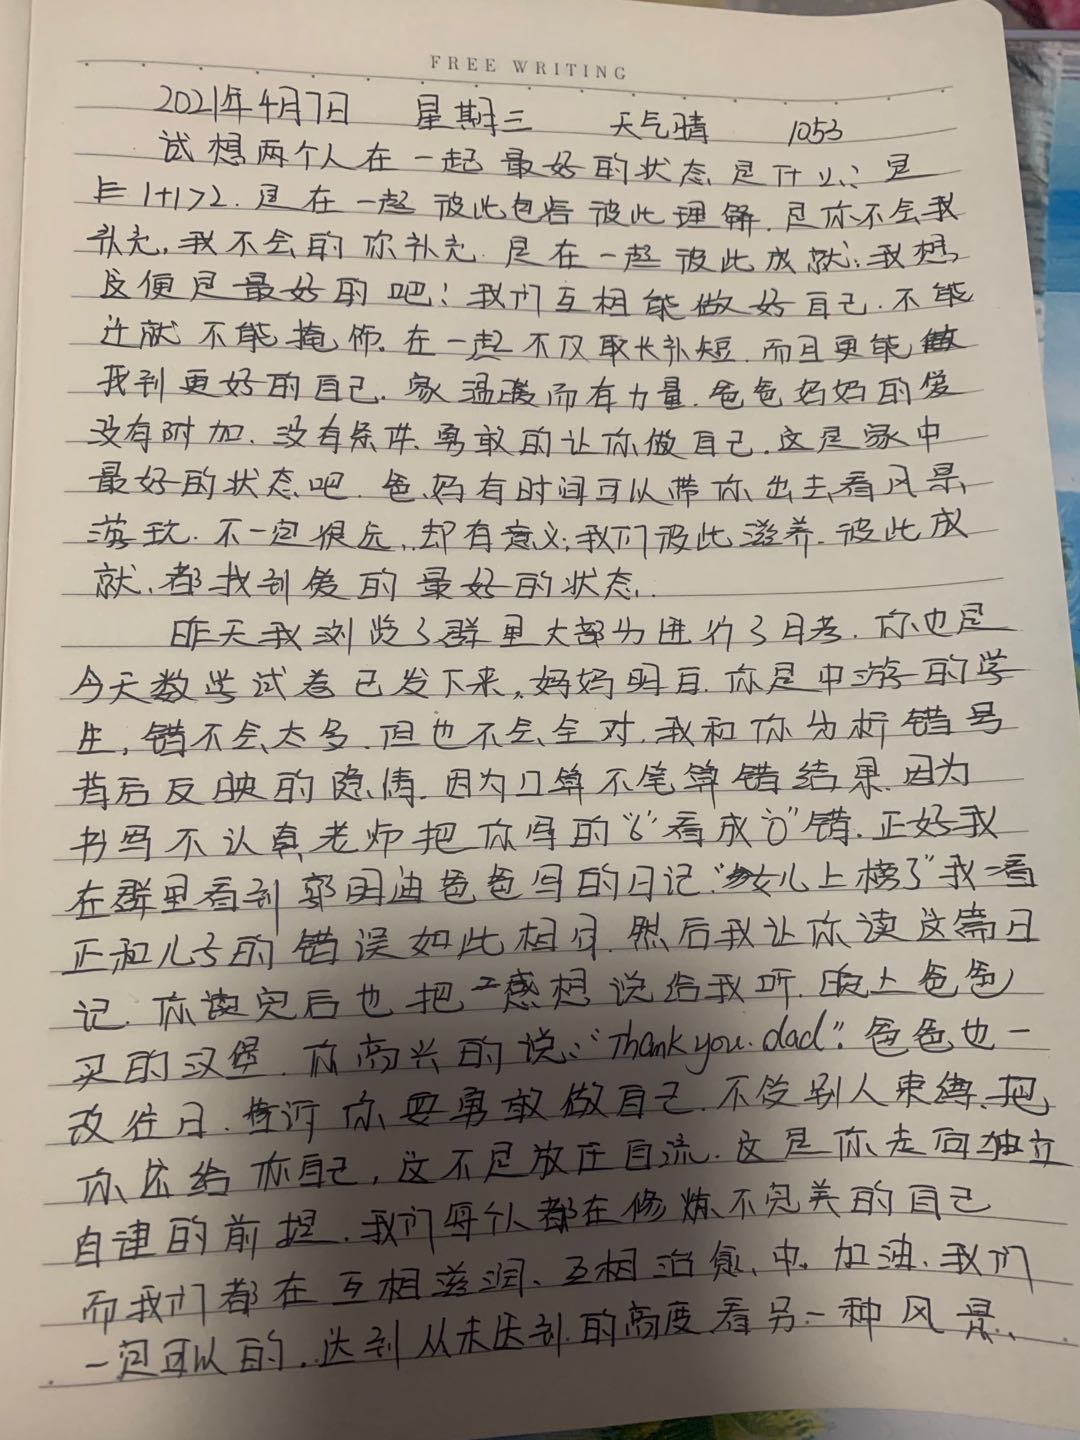 FREE WRITING
2021年4月7日 星期三 天气晴 1053
试想两个人在一起最好的状态是什么？是
1+1>2.是在一起彼此包容彼此理解.是你不会我
补充,我不会的你补充.是在一起彼此成就;我想,
这便是最好的吧!我们互相能做好自己.不能
迁就不能掩饰.在一起不仅取长补短.而且更能做
找到更好的自己.家温暖而有力量.爸爸妈妈的爱
没有附加.没有条件.勇敢的让你做自己.这是家中
最好的状态吧.爸妈有时间可以带你出去看风景,
游玩.不一定很远,却有意义;我们彼此滋养.彼此成
就,都找到爱的最好的状态.
昨天我浏览了群里大部分进行了月考.你也是
今天数学试卷已发下来,妈妈明白.你是中游的学
生,错不会太多.但也不会全对.我和你分析错号
背后反映的隐情.因为口算不笔算错结果.因为
书写不认真老师把你写的“6”看成“0”错.正好我
在群里看到郭明迪爸爸写的日记“女儿上榜了”我一看
正和儿子的错误如此相同.然后我让你读这篇日
记.你读完后也把感想说给我听.晚上爸爸
买的汉堡.你高兴的说:“Thank you.dad”.爸爸也一
改往日.告诉你要勇敢做自己.不受别人束缚.把
你还给你自己,这不是放任自流.这是你走向独立
自律的前提.我们每个人都在修炼不完美的自己
而我们都在互相滋润、互相治愈中.加油.我们
一定可以的.达到从未达到的高度看另一种风景.